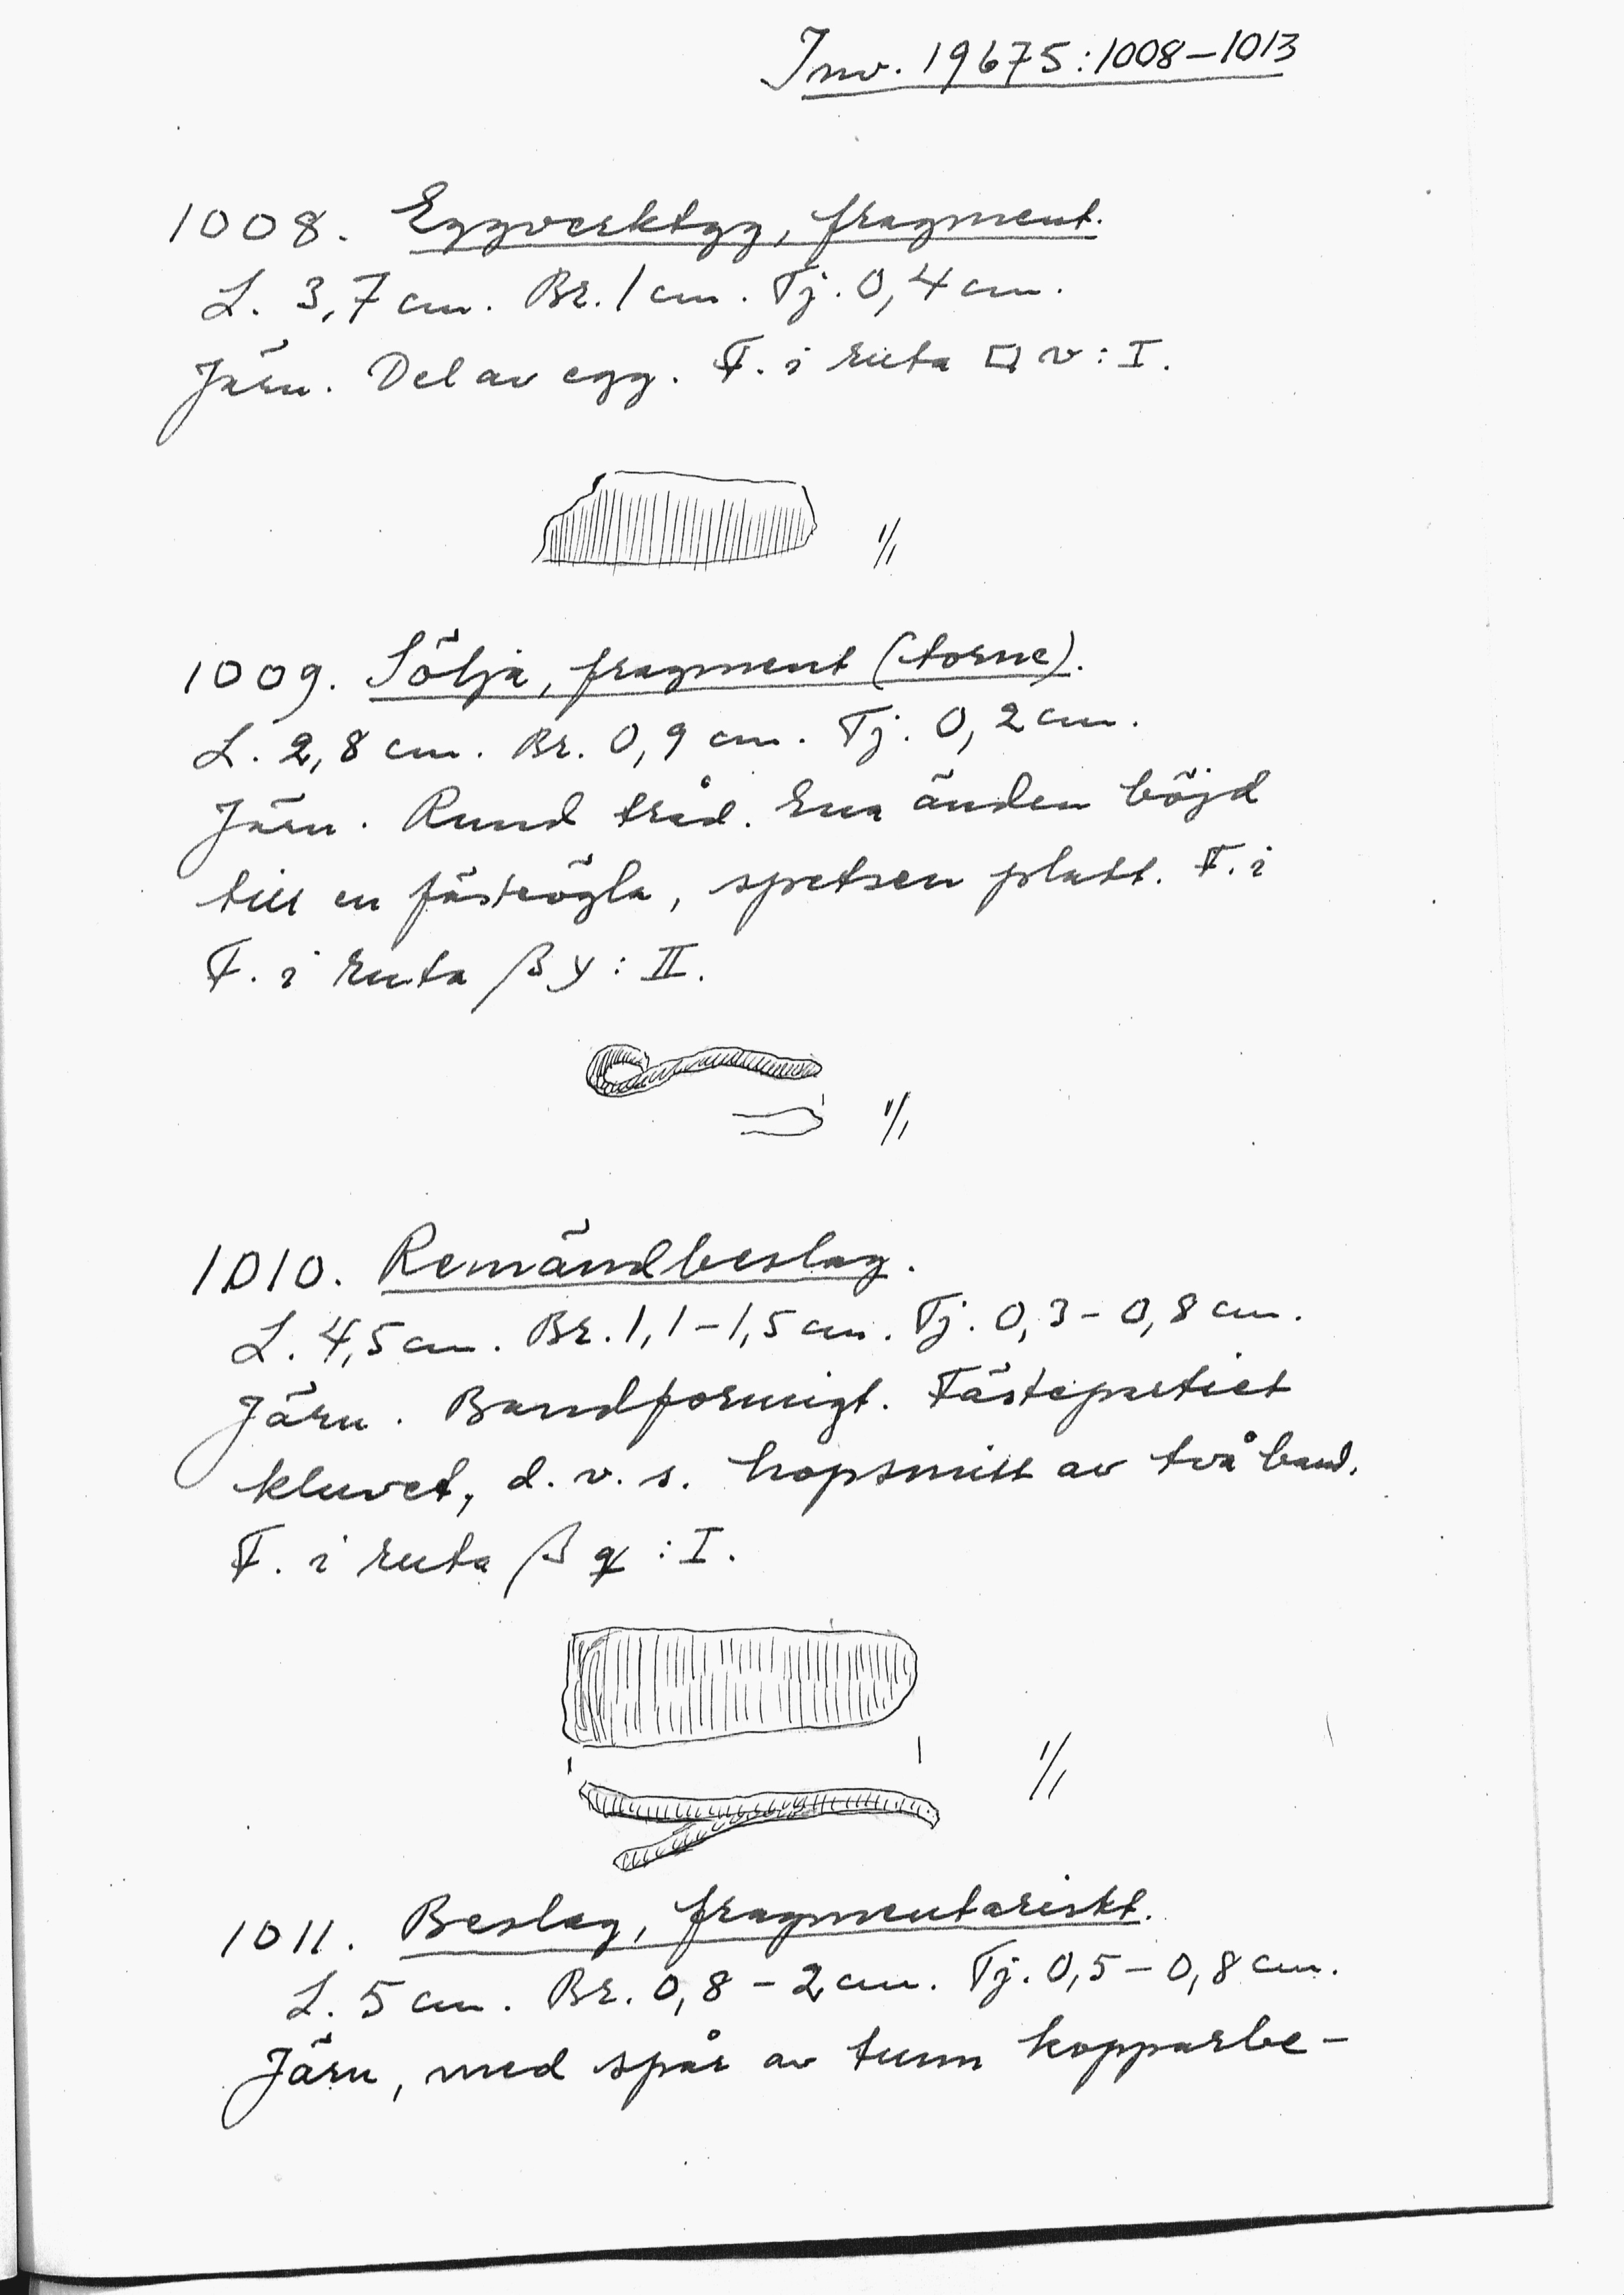 Inv. 19675:1008–1013
1008. Eggverktyg, fragment.
L. 3,7 cm. Br. 1 cm. Tj. 0,4 cm.
Järn. Del av egg. F. i ruta v: I.
1/1
1009. Sölja, fragment (torne).
L. 2,8 cm. Br. 0,9 cm. Tj. 0,2 cm.
Järn. Rund tråd. Ena änden böjd
till en fästeögla, spetsen platt. F. i
F. i ruta β y: II.
1/1
1010. Remändbeslag.
L. 4,5 cm. Br. 1,1–1,5 cm. Tj. 0,3–0,8 cm.
Järn. Bandformigt. Fästepartiet
kluvet, d. v. s. hopsmitt av två band.
F. i ruta β q: I.
1/1
1011. Beslag, fragmentariskt.
L. 5 cm. Br. 0,8–2 cm. Tj. 0,5–0,8 cm.
Järn, med spår av tunn kopparbe-